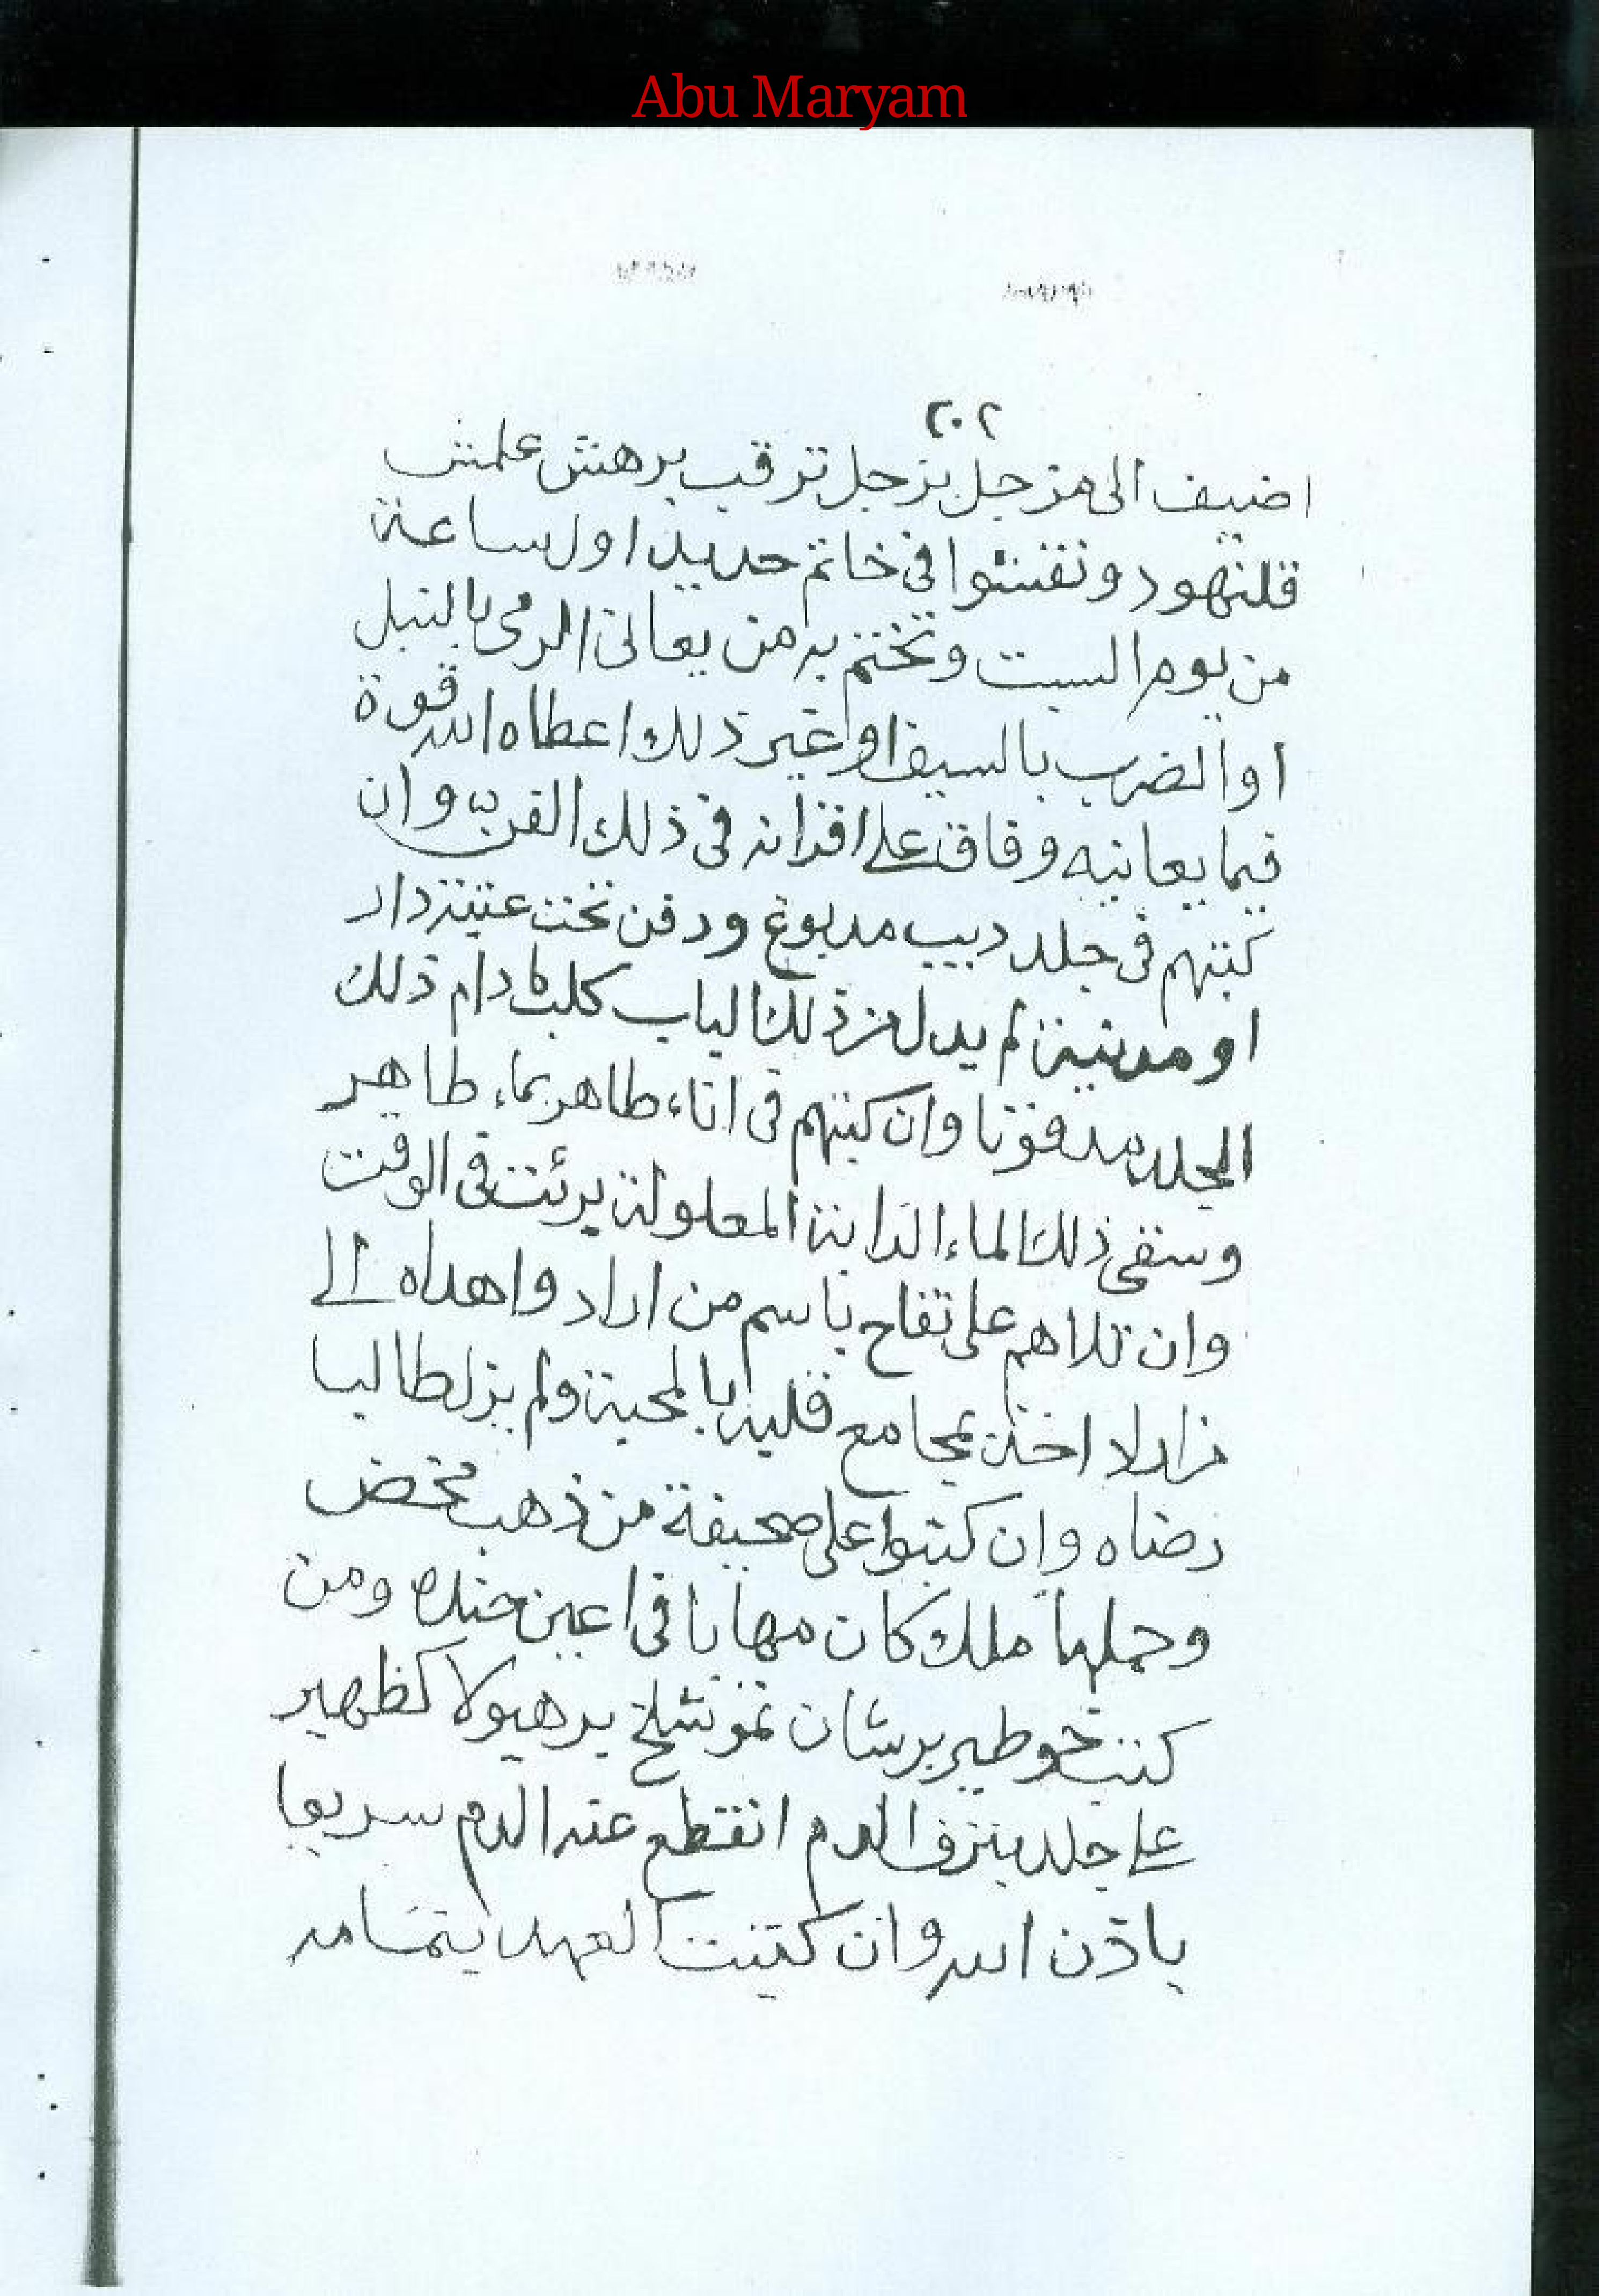 Abu Maryam
٢٠٢
اضيف الى مزجل بزجل ترقب برهش غلمش
قلنهود ونقشوا فى خاتم حديد اول ساعة
من يوم السبت وتختم به من يعانى الرمى بالنبل
او الضرب بالسيف او غير ذلك اعطاه الله قوة
فيما يعانيه وفاق على اقرانه فى ذلك الفن وان
كتبهم فى جلد ديب مدبوغ ودفن تحت عتبة دار
او مدينة لم يدخل من ذلك الباب كلب ما دام ذلك
الجلد مدفونا وان كتبهم فى اناء طاهر بماء طاهر
وسقى ذلك الماء الدابة المعلولة برئت فى الوقت
وان تلاهم على تفاح باسم من اراد واهداه الى
من اراد اخذ بمجامع قلبه بالمحبة ولم يزل طالبا
رضاه وان كتبوا على صحيفة من ذهب محض
وحملها ملك كان مهابا فى اعين جنده ومن
كتب خوطير برشان نموشلخ برهيولا كظهير
على جلد ينزف الدم انقطع عنه الدم سريعا
باذن الله وان كتبت العهد بتمامه